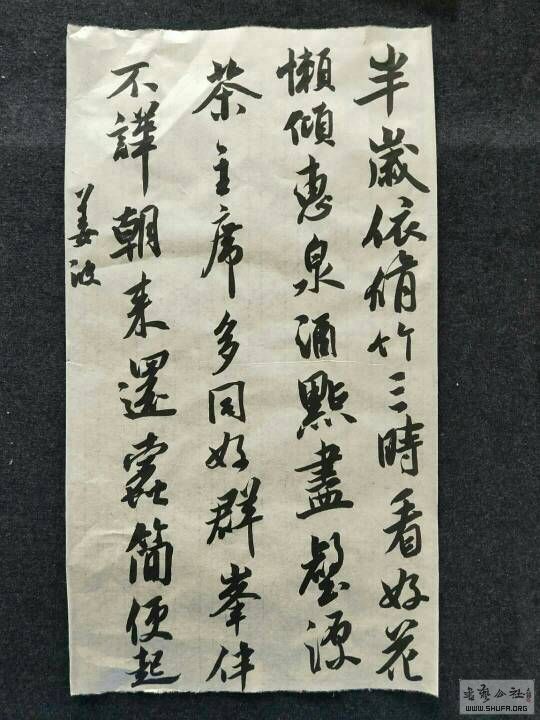 半歲依脩竹三時看好花
懶傾惠泉酒點盡壑源
茶主席多同好群峯伴
不譁朝来還蠹簡便起
姜波
书艺公社
WWW.SHUFA.ORG